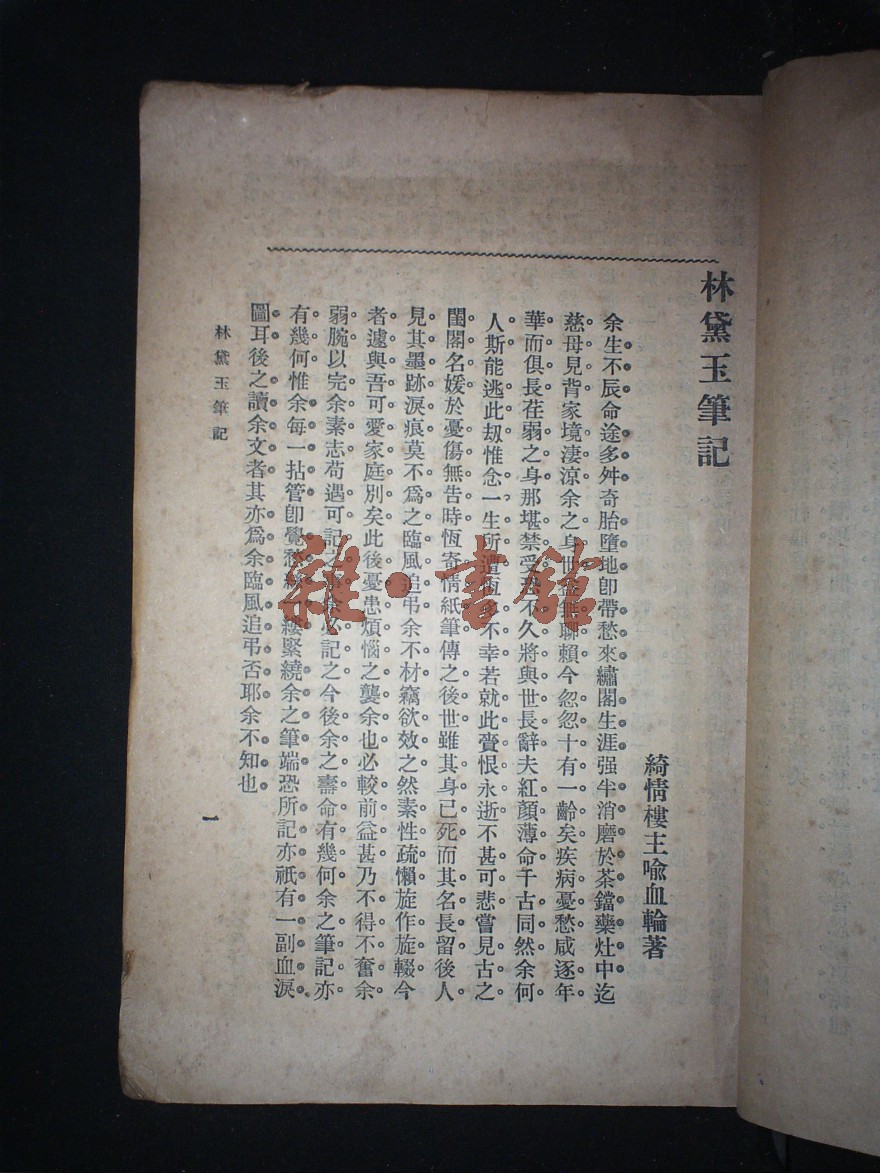 林黛玉筆記
綺情樓主喩血輪著
余生不辰命途多舛奇胎墮地卽帶愁來繡閣生涯强半消磨於茶鐺藥灶中迄
慈母見背家境淒涼余之身世益無聊賴今忽忽十有一齡矣疾病憂愁咸逐年
華而俱長荏弱之身那堪禁受恐不久將與世長辭夫紅顏薄命千古同然余何
人斯能逃此刼惟念一生所遭恆多不幸若就此賷恨永逝不甚可悲嘗見古之
閨閣名媛於憂傷無告時恆寄情紙筆傳之後世雖其身已死而其名長留後人
見其墨跡淚痕莫不爲之臨風追弔余不材竊欲效之然素性疏懶旋作旋輟今
者遽與吾可愛家庭別矣此後憂患煩惱之襲余也必較前益甚乃不得不奮余
弱腕以完余素志苟遇可記之余必記之今後余之壽命有幾何余之筆記亦
有幾何惟余每一拈管卽覺愁縷緊繞余之筆端恐所記亦祇有一副血淚
圖耳後之讀余文者其亦爲余臨風追弔否耶余不知也
林黛玉筆記
一
雜·書館